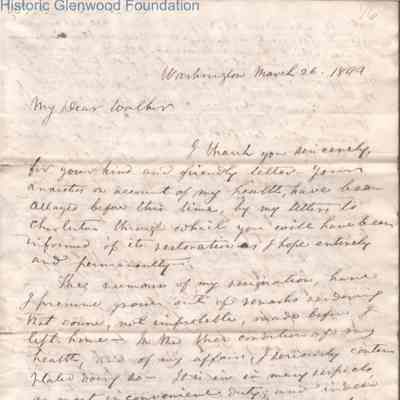 Historic Glenwood Foundation
Washington March 26. 1844
My Dear Walker
I thank you sincerely,
for your kind and friendly letter. Your
anxieties on account of my health, have been
allayed before this time, by my letters to
Charleston through which you will have been
informed of its restoration as I hope entirely
and permanently.
The rumours of my resignation, have
I presume grown out of remarks
not improbable, made before I
left home. In the then condition of my
health, and of my affairs, I seriously contem
plated doing so. It is in many respects,
a most inconvenient duty, and indeed